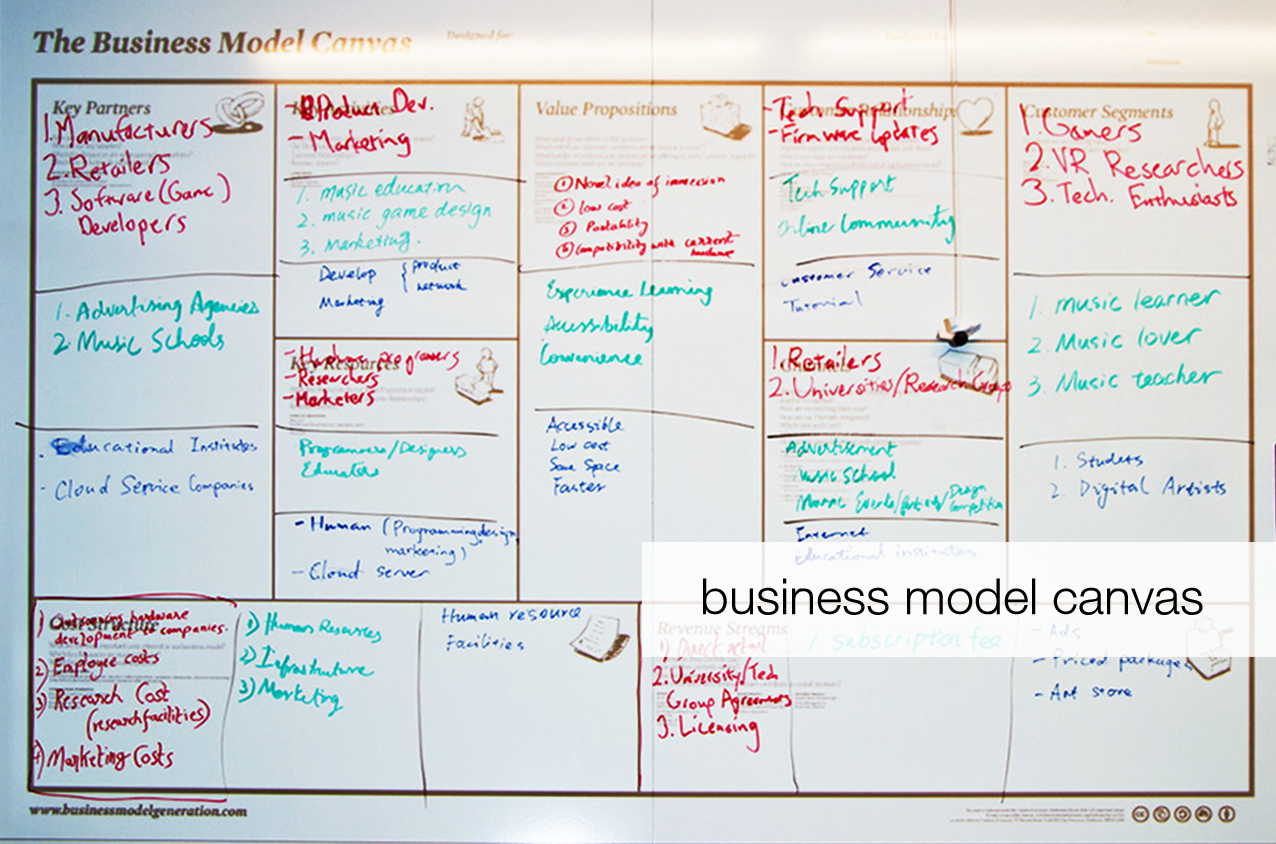 The Business Model Canvas
Designed for:
Key Partners
1. Manufacturers
2. Retailers
3. Software (Game)
Developers
1. Advertising Agencies
2. Music Schools
Educational Institutes
- Cloud Service Companies
- Product Dev.
- Marketing
1. Music education
2. music game design
3. Marketing.
Develop { product
network
Marketing
Key Resources
- Hardware programmers
- Researchers
- Marketers
Programmers/Designers
Educators
- Human (Programming, design,
marketing)
- Cloud server
Value Propositions
① Novel idea of immersion
② low cost
③ Portability
Compatibility with current
hardware
Experience Learning
Accessibility
Convenience
Accessible
Low cost
Save Space
Faster
Customer Relationships
- Tech Support
- Firmware Updates
Tech Support
Online Community
Customer Service
Tutorial
1. Retailers
2. Universities/Research Groups
Advertisement
Music School
Music Events/ Design
Competition
Internet
Educational institutes
Customer Segments
1. Gamers
2. VR Researchers
3. Tech. Enthusiasts
1. music learner
2. Music lover
3. Music teacher
1. Students
2. Digital Artists
business model canvas
Cost Structure
1) Outsourcing hardware
development to companies.
2) Employee costs
3) Research Cost
(research facilities)
4) Marketing Costs
1) Human Resources
2) Infrastruture
3) Marketing
Human resource
Facilities
Revenue Streams
1) Direct retail
2. University/Tech
Group Agreements
3. Licensing
1. subscription fee
- Ads
- Priced packages
- Art store
www.businessmodelgeneration.com